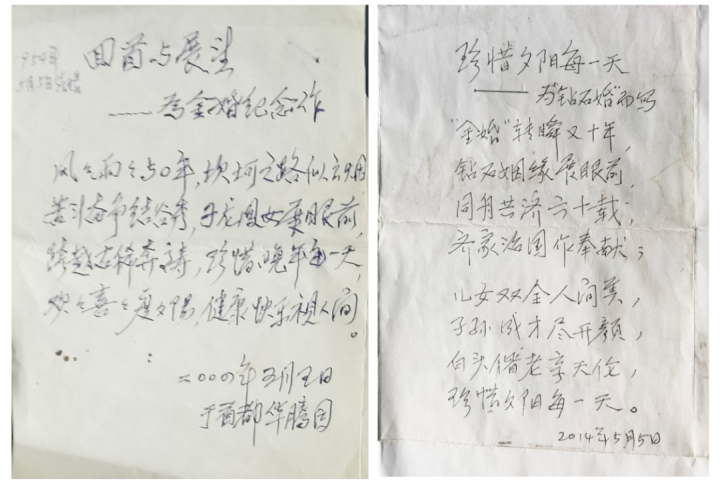 1954年
5月5日
回首与展望
——为金婚纪念作
风风雨雨50年，坎坷之路似云烟
苦斗奋争结谷秀，子龙凤女展眼前，
跨越古稀奔，珍惜晚年每一天，
欢欢喜喜度夕阳，健康快乐视人间。
二〇〇〇年五月五日
于首都华腾园
珍惜夕阳每一天
——为“钻石婚”而写
“金婚”转瞬又十年，
钻石姻缘展眼前，
同舟共济六十载，
齐家治国作奉献；
儿女双全人间美，
子孙成才尽开颜，
白头偕老享天伦，
珍惜夕阳每一天。
2014年5月5日